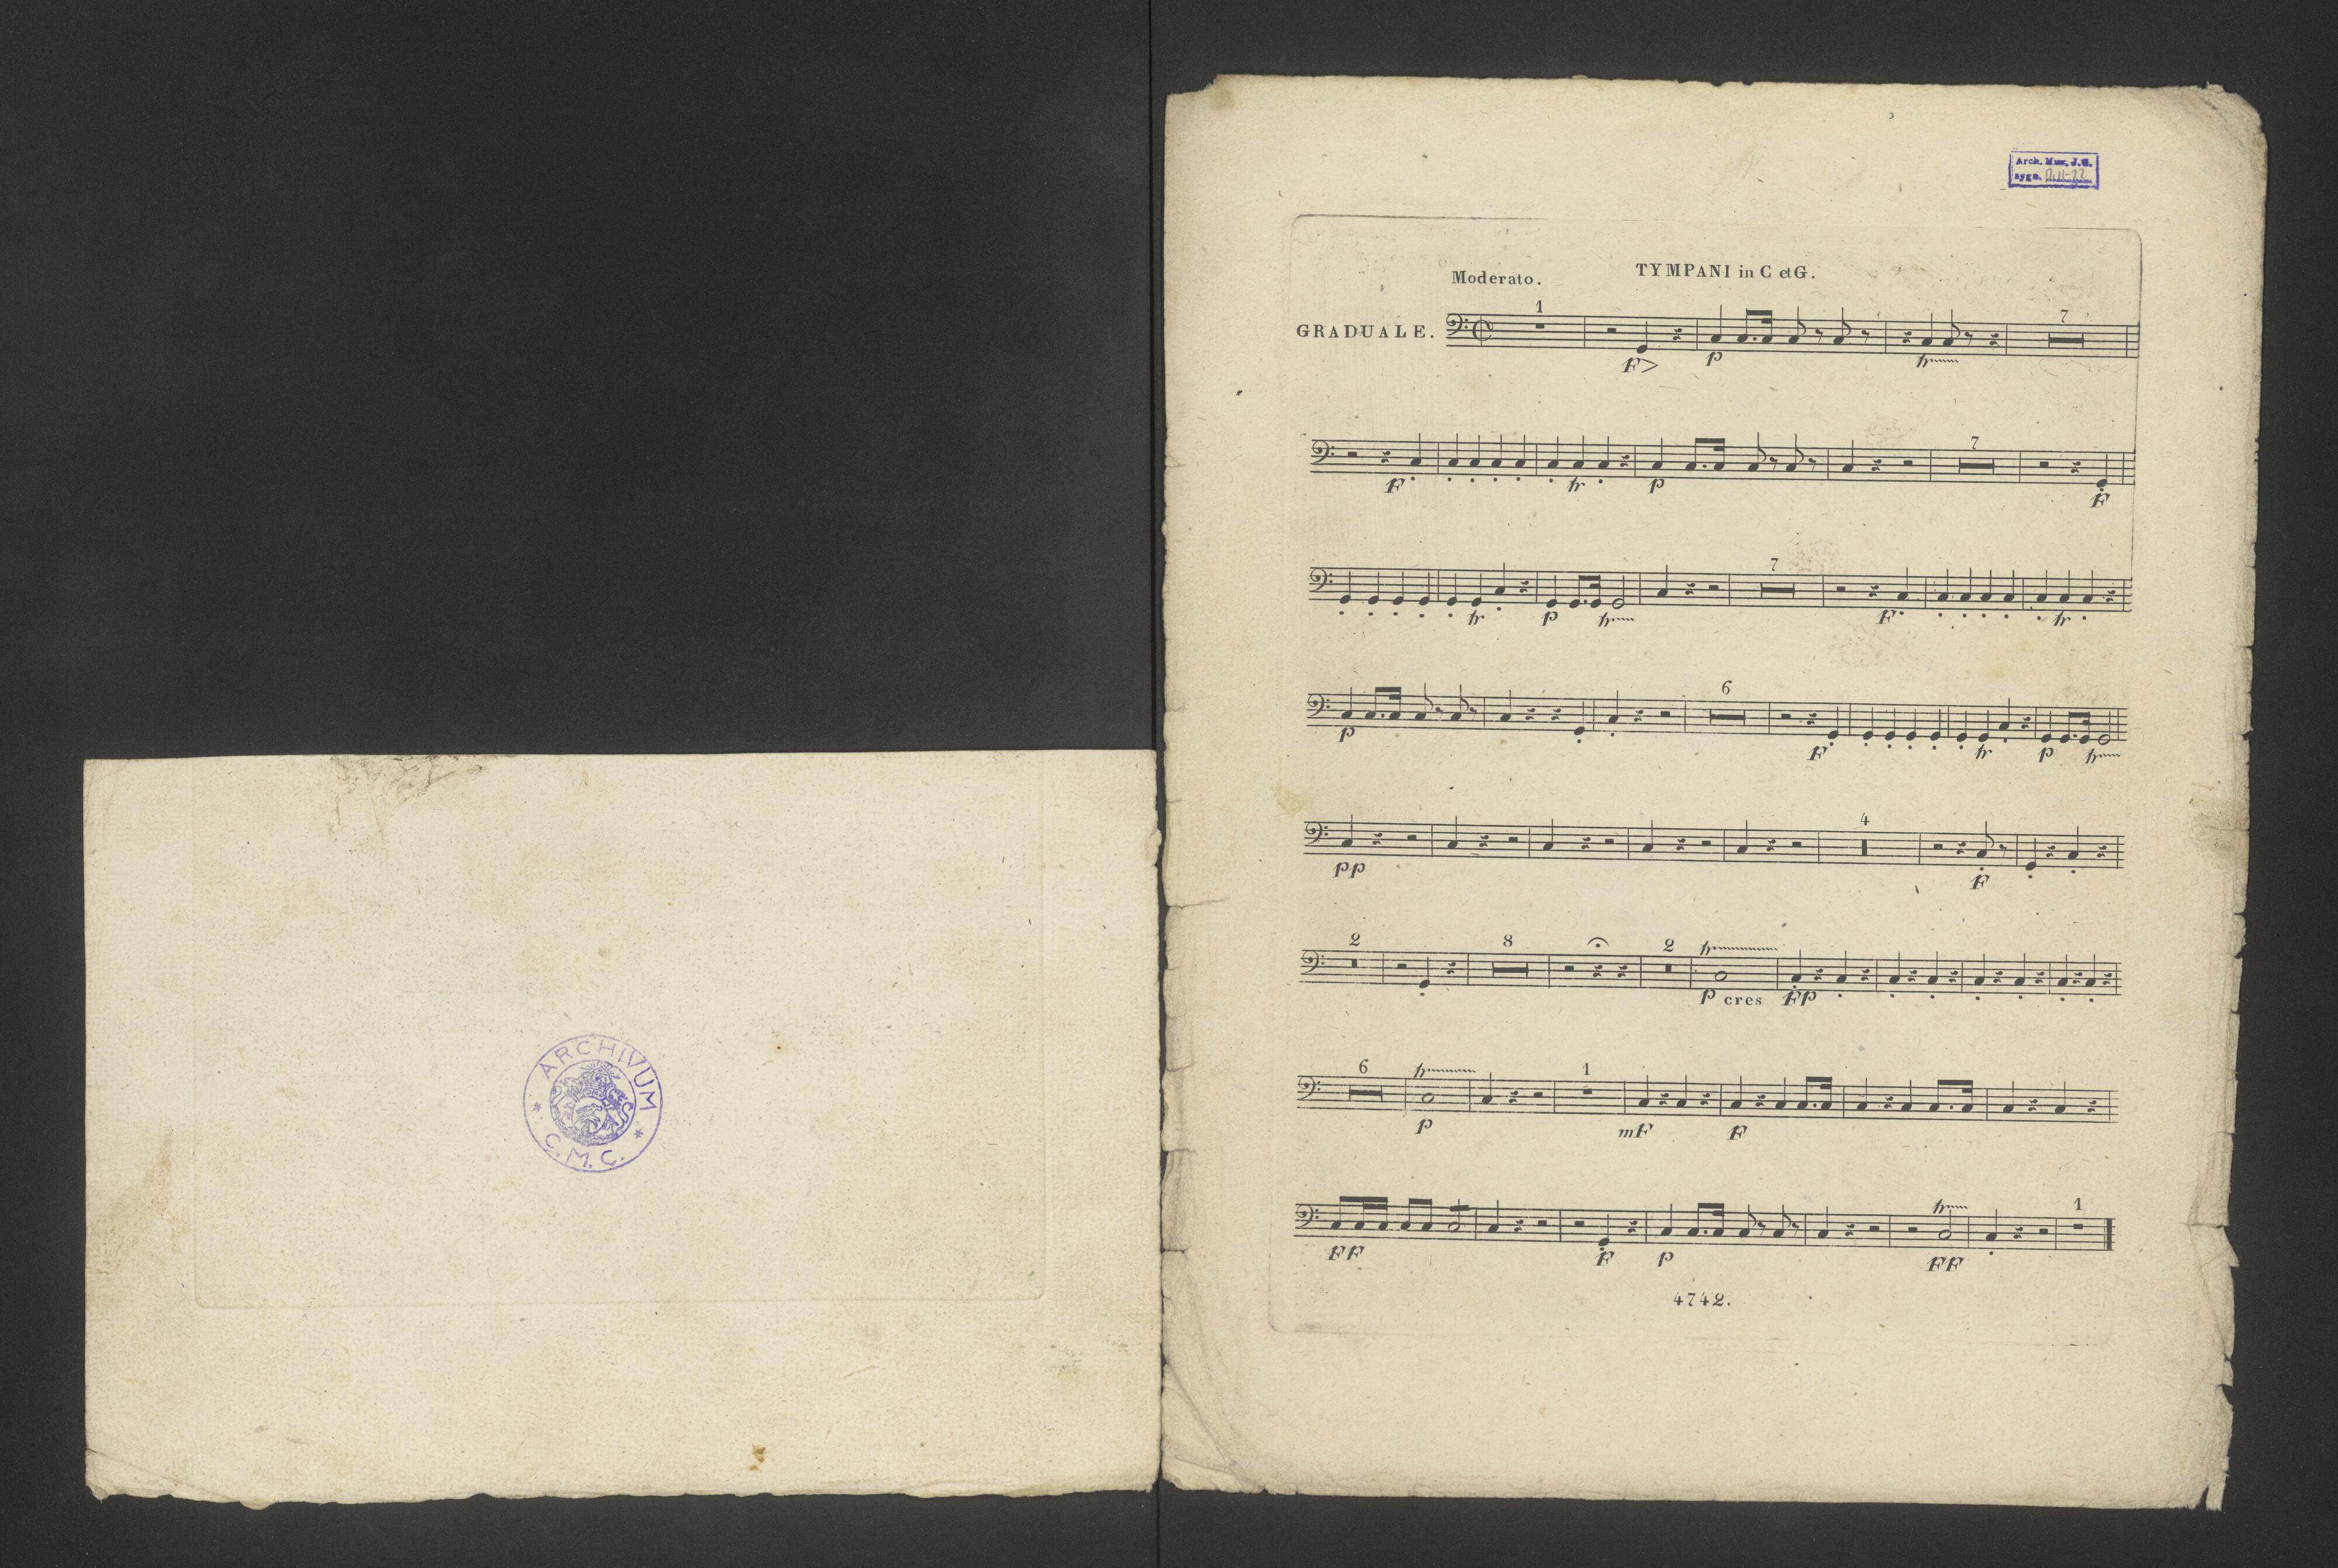 ARCHIVUM
C. M. C.
Arch. Muz. J.G.
sygn.
Moderato.
TYMPANI in C et G.
GRADUALE.
1 7
F> p tr
7
F tr p F
7
tr p tr F tr
6
p F tr p tr
4
pp F
2 8 2 tr
p cres Fp
6 tr 1
p mF F
tr 1
FF F p FF
4742.